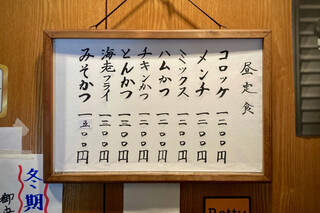 昼定食
コロッケ 一二〇〇円
メンチ 一二〇〇円
ミックス 一二〇〇円
ハムかつ 一二〇〇円
チキンかつ 一二〇〇円
とんかつ 一三〇〇円
海老フライ 一三〇〇円
みそかつ 一五〇〇円
冬期
御
Betty